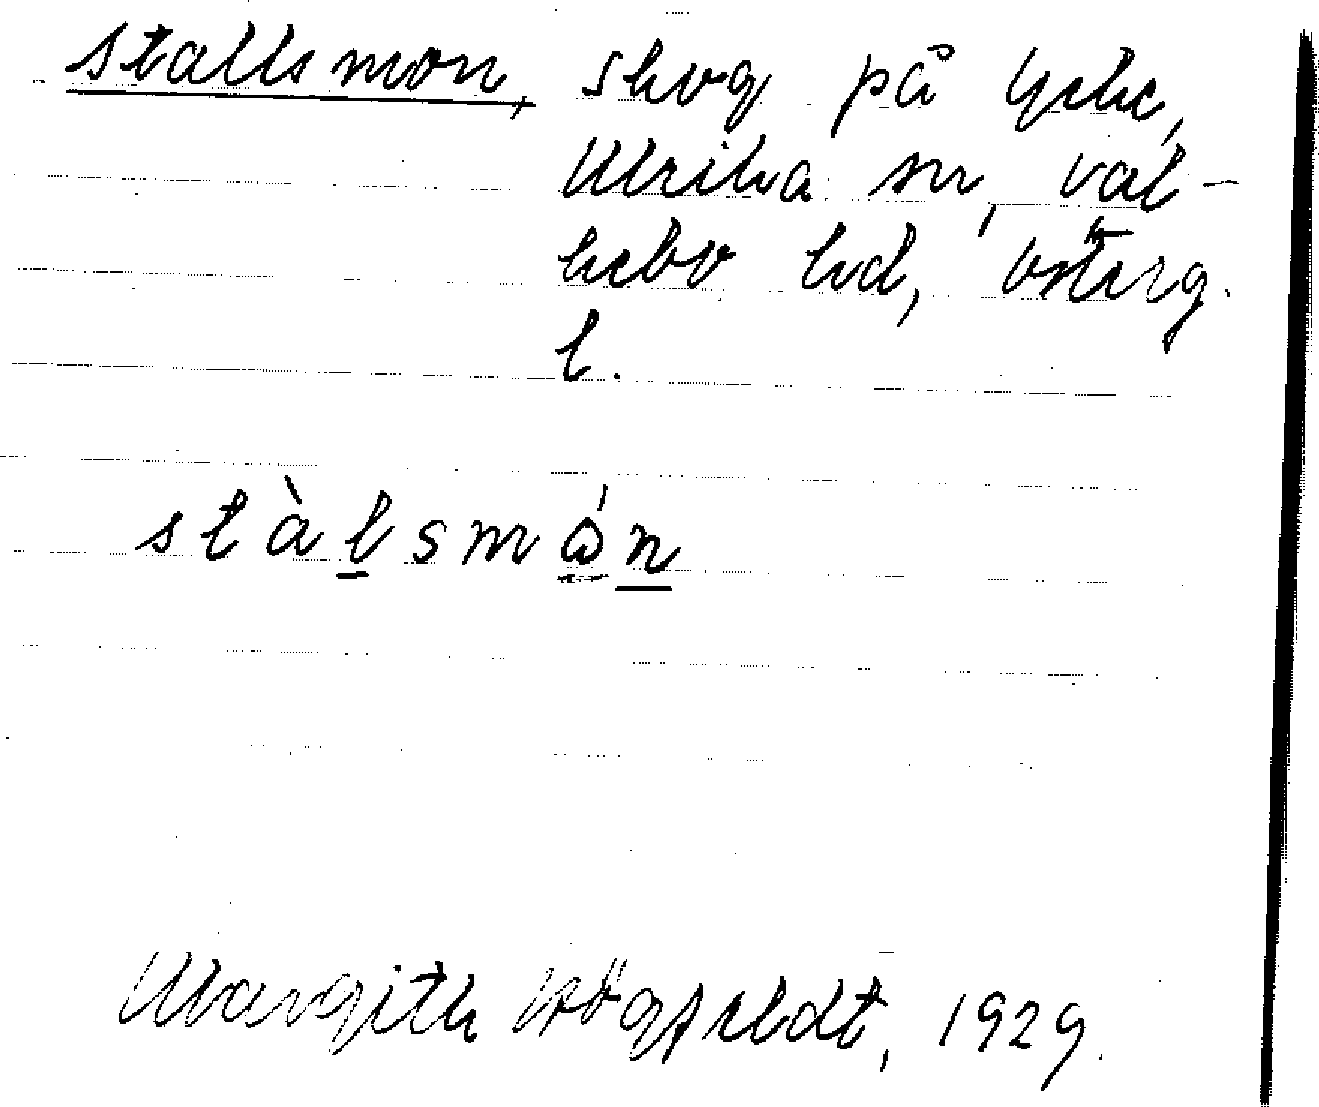 Stallsmon, skog på Ycke,
Ulrika sn, Val-
kebo hd, Österg.
l.
stàlsmón
Margith Högfeldt, 1929.